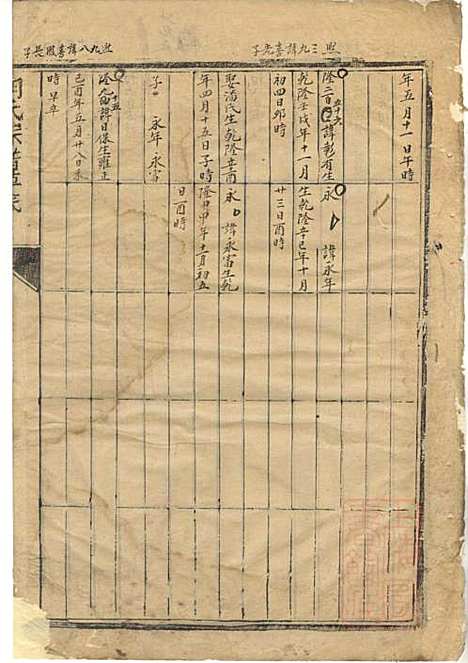 煦三九諱喜先子
煦九八諱喜殷長子
年五月十一日午時
隆二百五十六諱彰有生
乾隆壬戌年十一月
初四日卯時
娶潘氏生乾隆辛酉
年四月十五日子時
子 永年 永富
隆九 諱日保生雍正
己酉年五月廿八日未
時早卒
永 諱永年
生乾隆辛巳年十月
廿三日酉時
永 諱永富生乾
隆甲申年十一月初五
日酉時